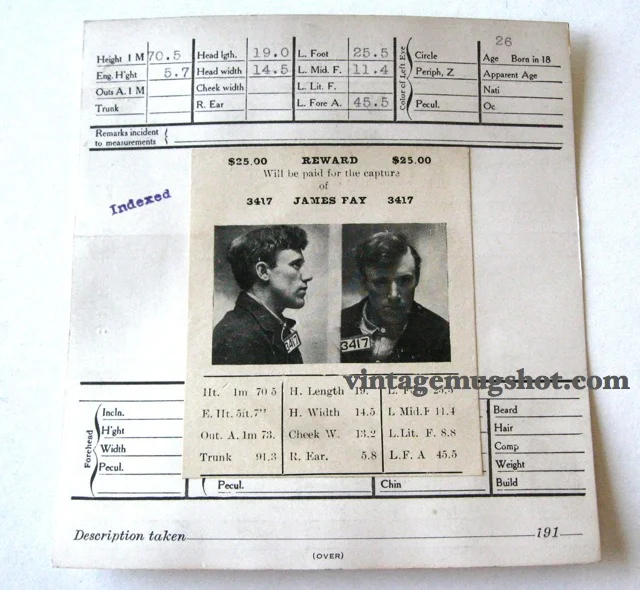 26
Height 1 M 70.5 Head lgth. 19.0 L. Foot 25.5 Circle Age Born in 18
Eng. H'ght 5.7 Head width 14.5 L. Mid. F. 11.4 Periph, Z Apparent Age
Outs A. 1 M Cheek width L. Lit. F. Nati
Trunk R. Ear L. Fore A. 45.5 Pecul. Oc
Color of Left Eye
Remarks incident
to measurements
Indexed
$25.00 REWARD $25.00
Will be paid for the capture
of
3417 JAMES FAY 3417
3417
3417
vintagemugshot.com
Ht. 1m 70 5 H. Length 19. L. 25.5
E. Ht. 5ft. 7" H. Width 14.5 L Mid. F 11.4
Out. A. 1m 73. Cheek W. 13.2 L. Lit. F. 8.8
Trunk 91.3 R. Ear. 5.8 L. F. A 45.5
Forehead
Incln. Beard
H'ght Hair
Width Comp
Pecul. Weight
Pecul. Chin Build
Description taken 191
(OVER)